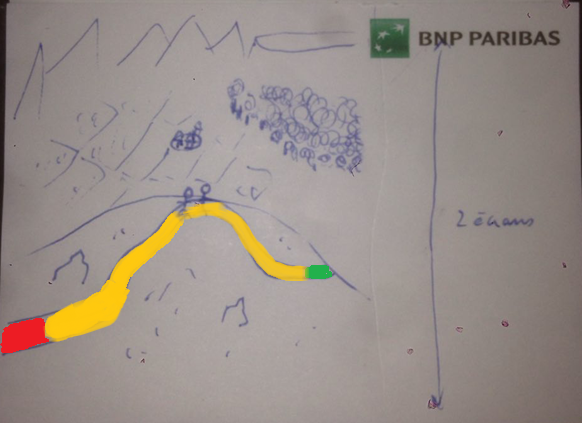 BNP PARIBAS
2 écrans